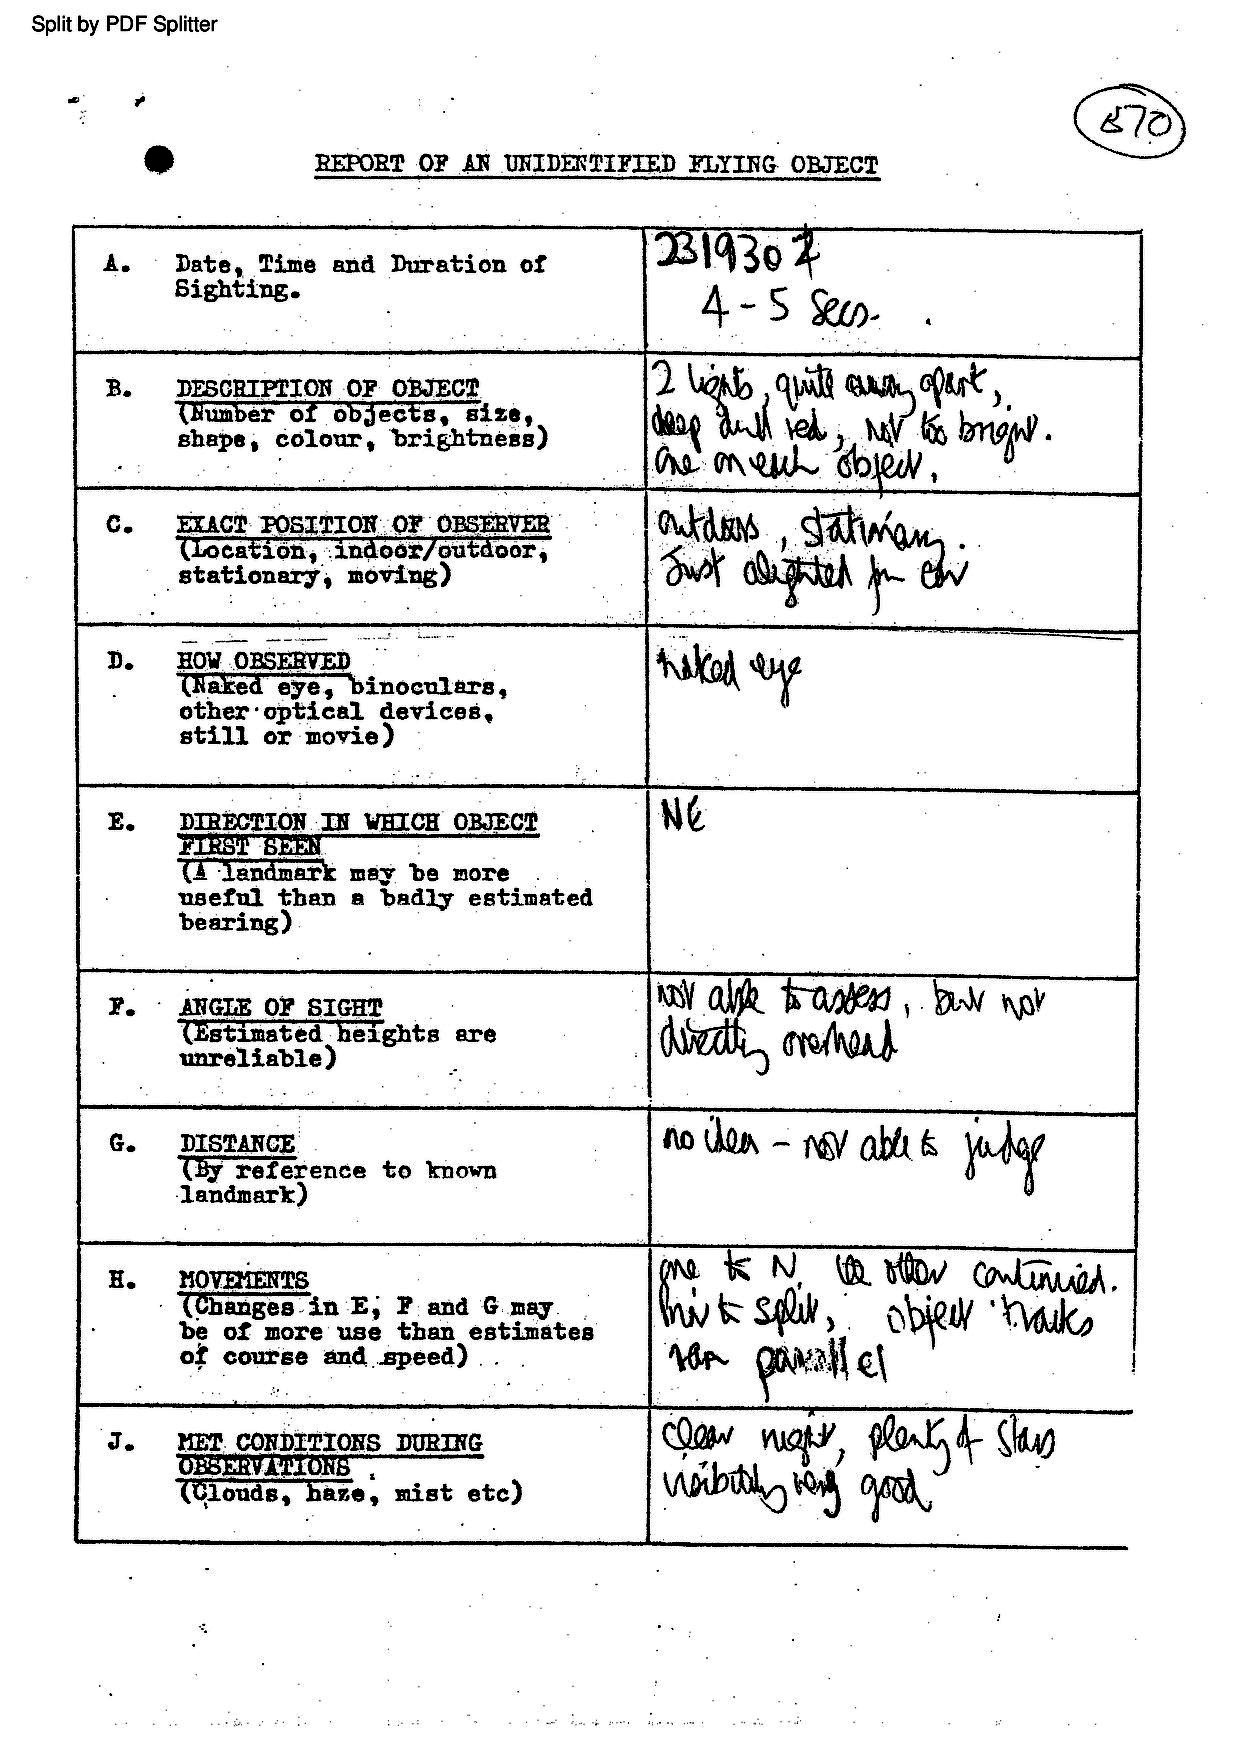 Split by PDF Splitter
REPORT OF AN UNIDENTIFIED FLYING OBJECT
A. Date, Time and Duration of
Sighting.
231930Z
4 - 5 Secs.
B. DESCRIPTION OF OBJECT
(Number of objects, size,
shape, colour, brightness)
2 lights, quite away apart,
deep dull red, not too bright.
One on each object.
C. EXACT POSITION OF OBSERVER
(Location, indoor/outdoor,
stationary, moving)
outdoors, stationary.
Just alighted fm car
D. HOW OBSERVED
(Naked eye, binoculars,
other optical devices,
still or movie)
naked eye
E. DIRECTION IN WHICH OBJECT
FIRST SEEN
(A landmark may be more
useful than a badly estimated
bearing)
NE
F. ANGLE OF SIGHT
(Estimated heights are
unreliable)
not able to assess, but not
directly overhead
G. DISTANCE
(By reference to known
landmark)
no idea - not able to judge
H. MOVEMENTS
(Changes in E, F and G may
be of more use than estimates
of course and speed)
one to N, the other continued.
to split, object tracks
ran parallel
J. MET CONDITIONS DURING
OBSERVATIONS
(Clouds, haze, mist etc)
clear night, plenty of stars
visibility very good